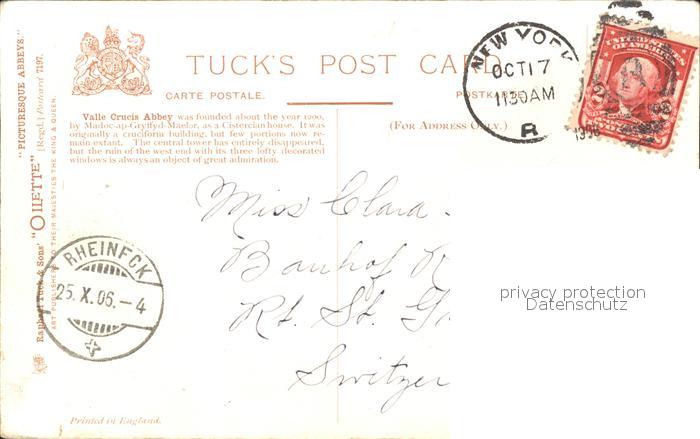 TUCK'S POST CARD
CARTE POSTALE.
POSTKARTE
(FOR ADDRESS ONLY.)
Valle Crucis Abbey was founded about the year 1200,
by Madoc-ap-Gryffyd-Maelor, as a Cistercian house. It was
originally a cruciform building, but few portions now re-
main extant. The central tower has entirely disappeared,
but the ruin of the west end with its three lofty decorated
windows is always an object of great admiration.
"PICTURESQUE ABBEYS."
Raphael Tuck & Sons' "OILETTE" [Regd.] Postcard 7197.
ART PUBLISHERS TO THEIR MAJESTIES THE KING & QUEEN.
NEW YORK
OCT 17
1130AM
R
1906
UNITED STATES
OF AMERICA
Miss Clara
Banhof R
Kt. St. G
Switzer
RHEINECK
25. X. 06. - 4
privacy protection
Datenschutz
Printed in England.